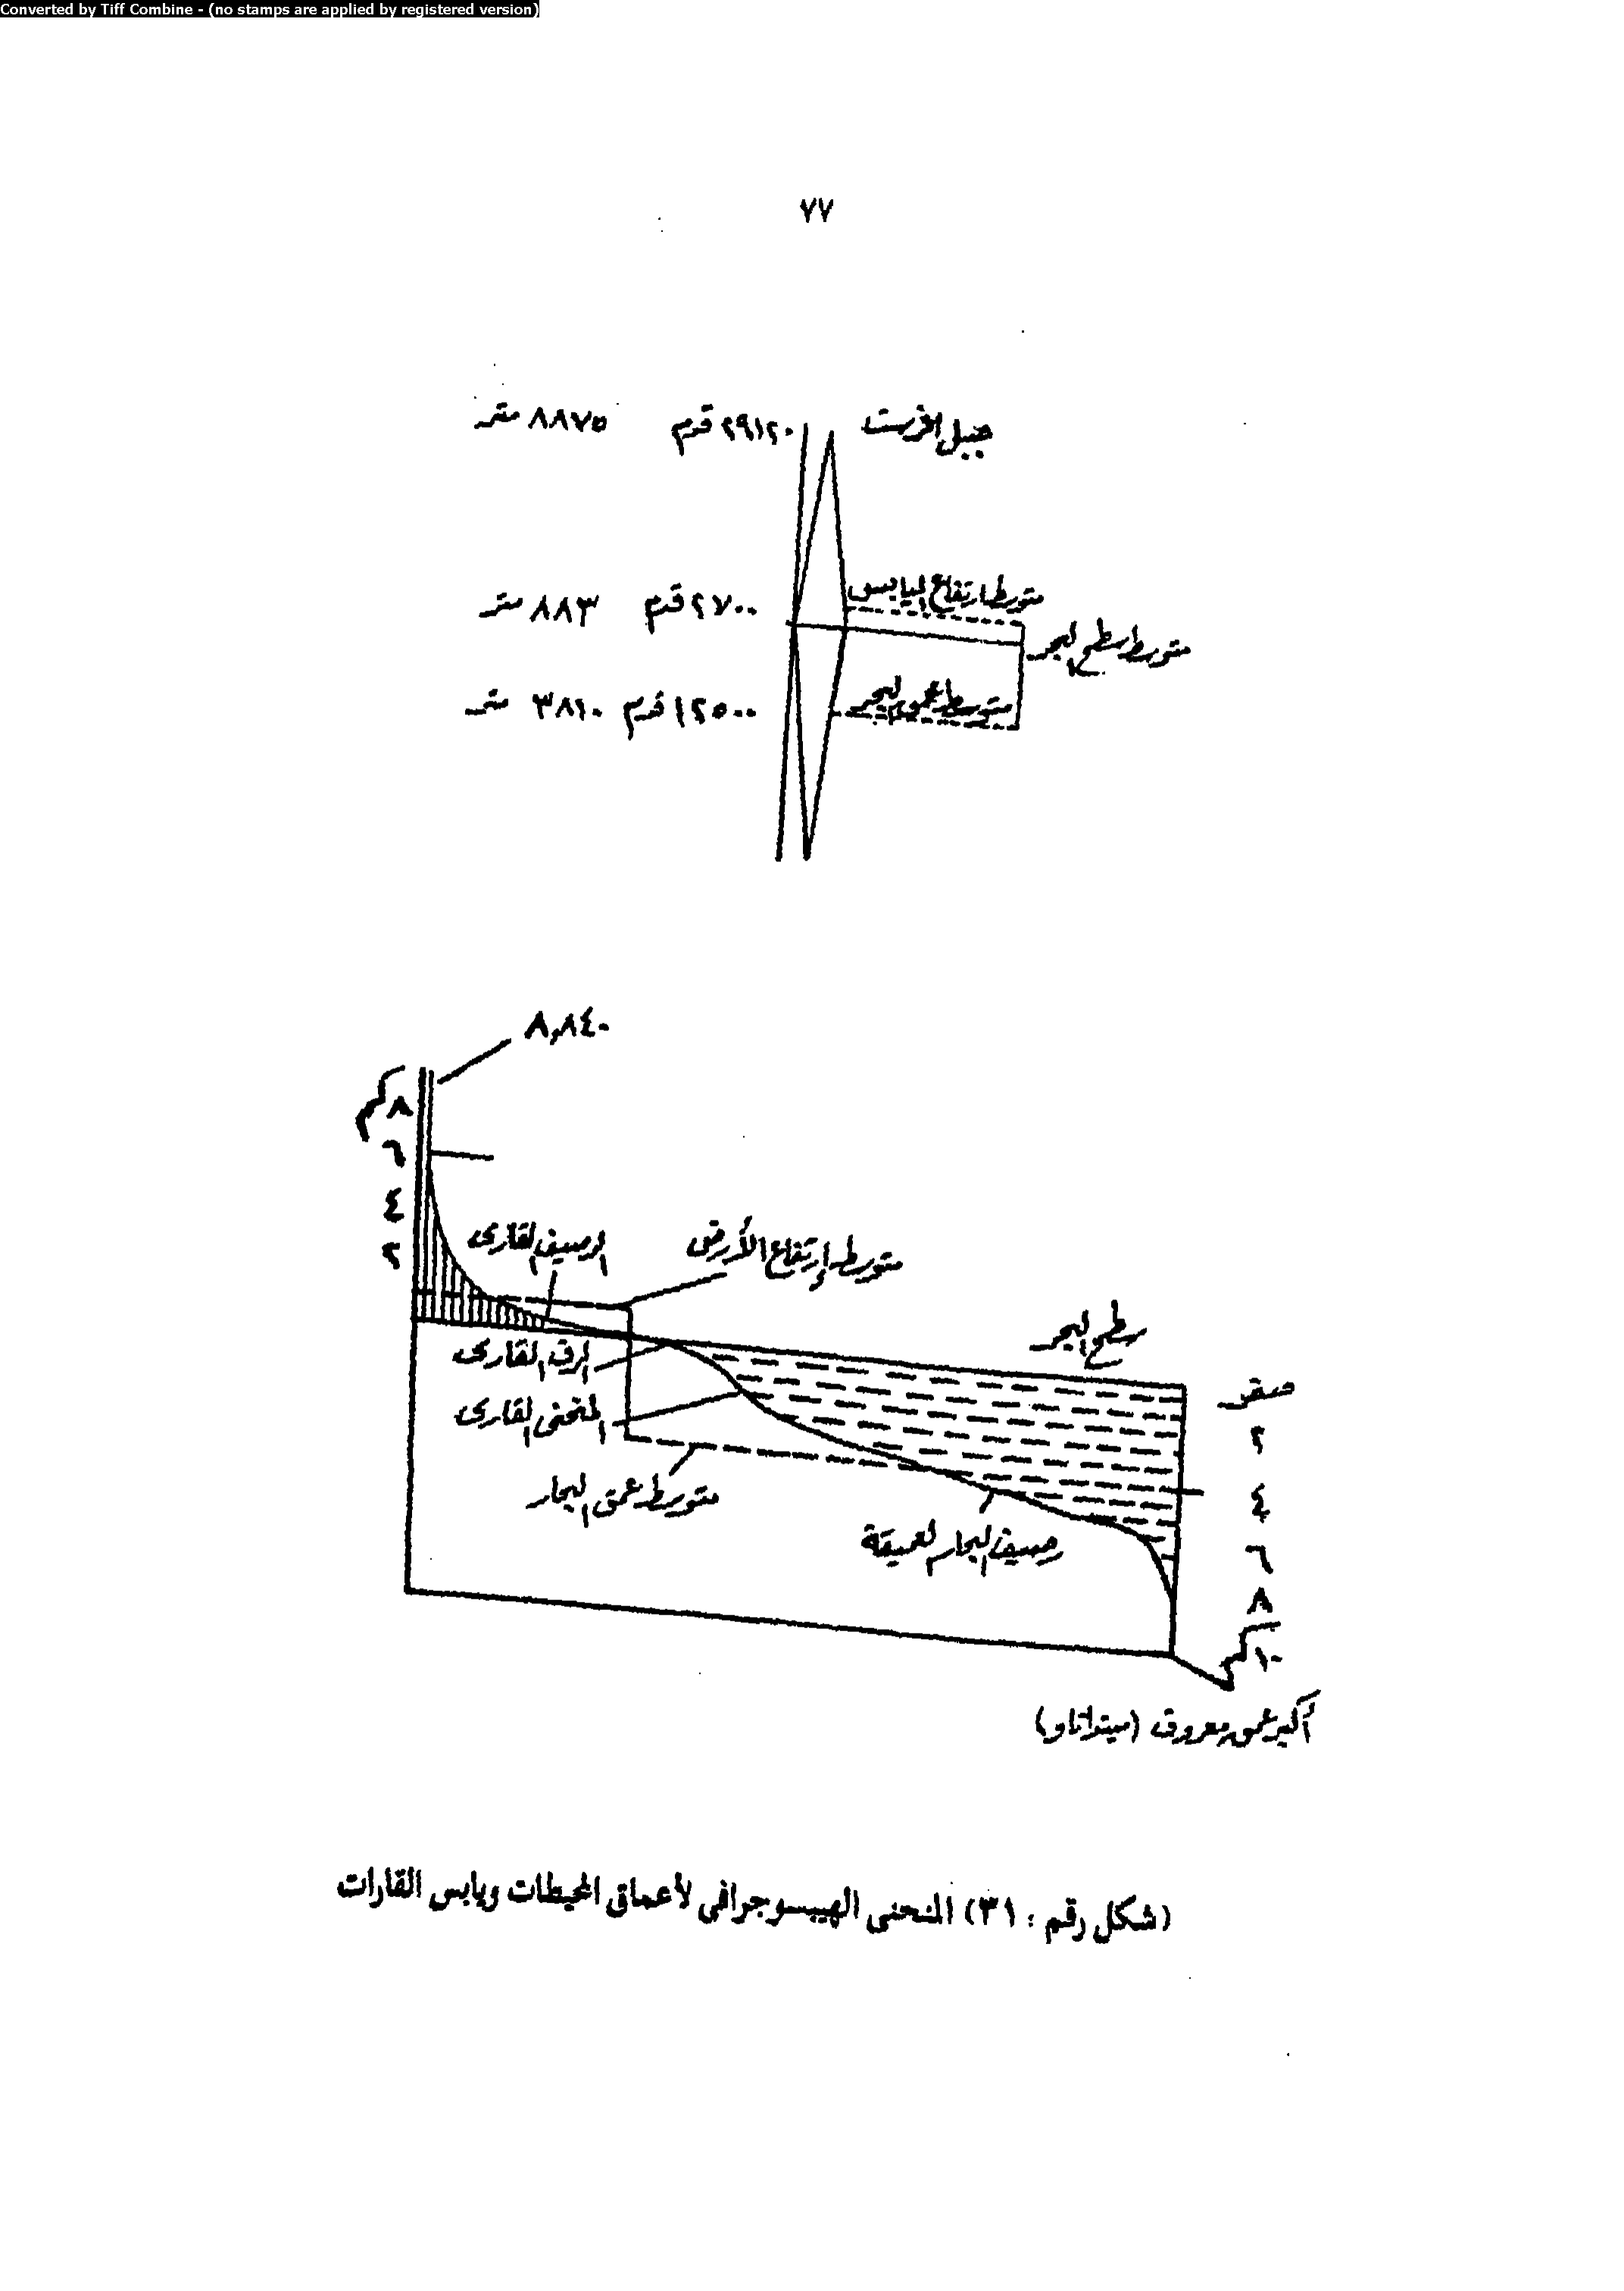 Converted by Tiff Combine - (no stamps are applied by registered version)
٧٧
جبل افرست ٢٩١٢٠ قدم ٨٨٧٥ متر
متوسط ارتفاع اليابس ٢٧٠٠ قدم ٨٨٣ متر
متوسط سطح البحر
متوسط عمق البحر ١٢٥٠٠ قدم ٣٨١٠ متر
٨,٨٤٠
٨ كم
٦
٤
٢
الرصيف القارى
متوسط إرتفاع الأرض
سطح البحر
الرف القارى
المنحنى القارى
متوسط عمق البحار
رصيف البحار العميقة
صفر
٢
٤
٦
٨
١٠ كم
أكبر عمق معروف (مينداناو)
(شكل رقم : ٣١) المنحنى الهيبسوجرافى لأعماق المحيطات ويابس القارات